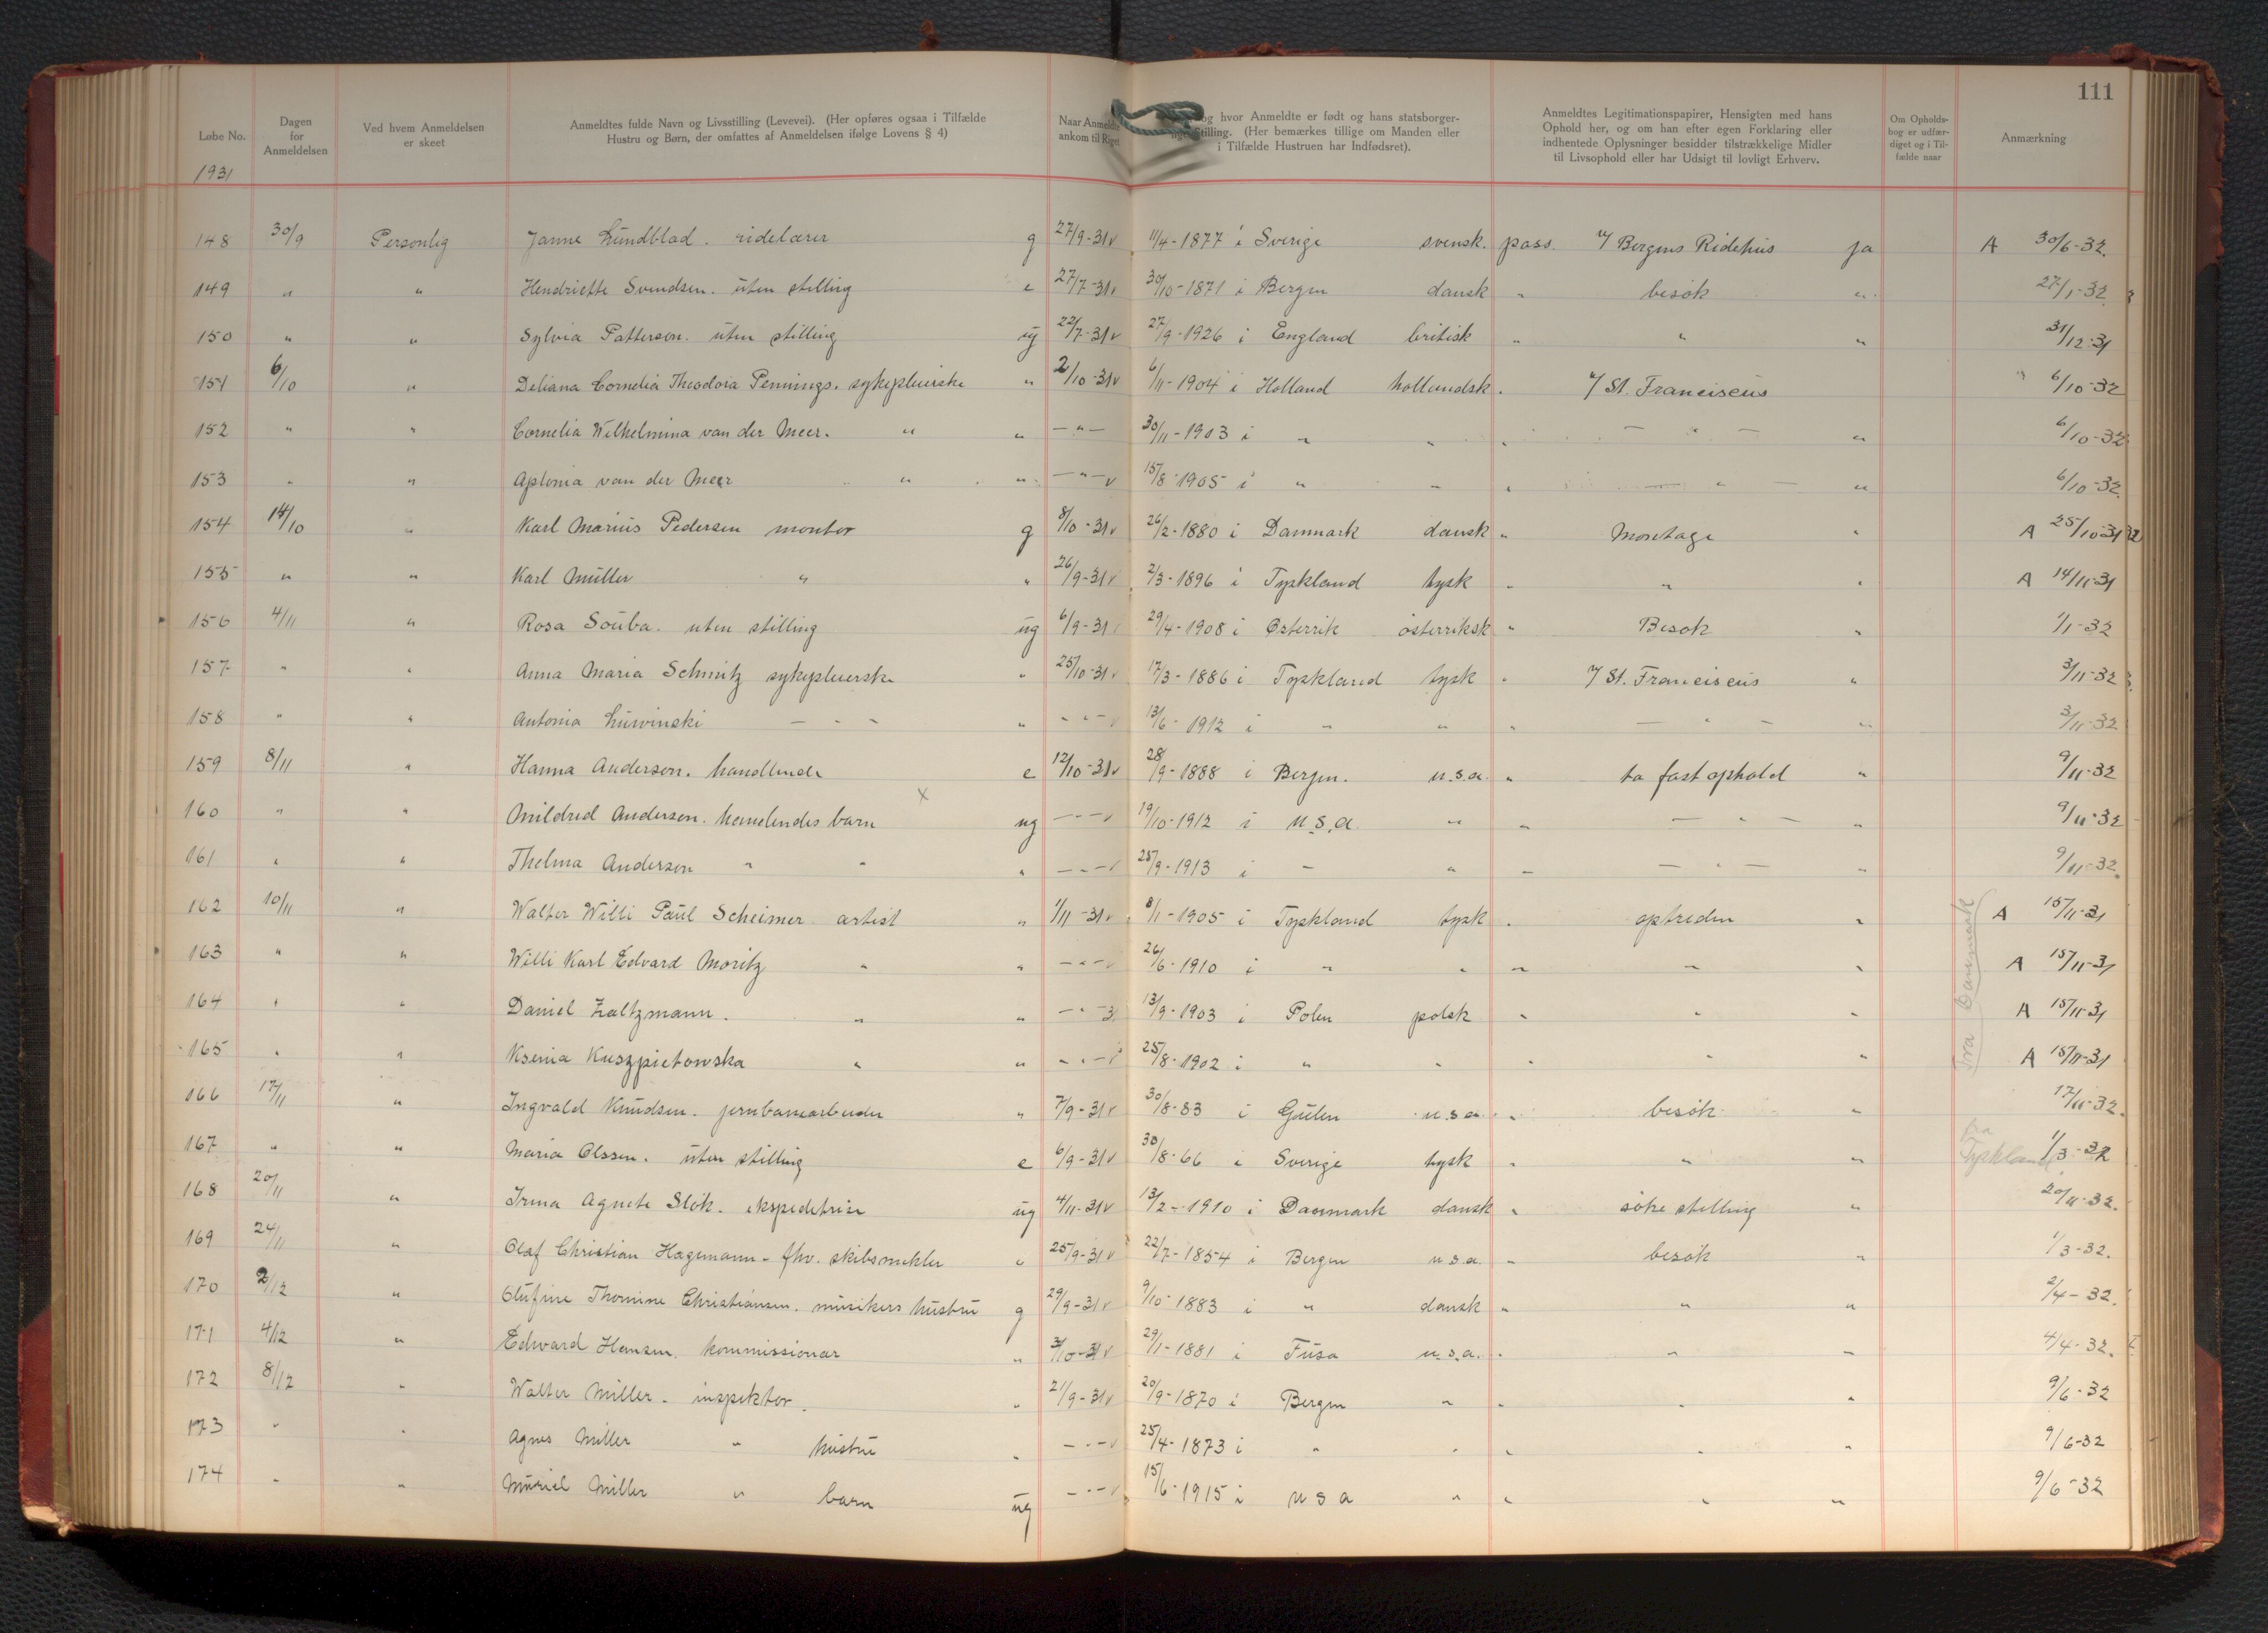 111
Løbe No.
Dagen for Anmeldelsen
Ved hvem Anmeldelsen er skeet
Anmeldtes fulde Navn og Livsstilling (Levevei). (Her opføres ogsaa i Tilfælde Hustru og Børn, der omfattes af Anmeldelsen ifølge Lovens § 4)
Naar Anmeldte ankom til Riget
og hvor Anmeldte er født og hans statsborger- Stilling. (Her bemærkes tillige om Manden eller i Tilfælde Hustruen har Indfødsret).
Anmeldtes Legitimationspapirer, Hensigten med hans Ophold her, og om han efter egen Forklaring eller indhentede Oplysninger besidder tilstrækkelige Midler til Livsophold eller har Udsigt til lovligt Erhverv.
Om Opholds- bog er udfær- diget og i Til- fælde naar
Anmærkning
1931
148 30/9 Personlig Janne Lundblad. ridelærer g 27/9-31 v 11/4-1877 i Sverige svensk. pass. v/ Bergens Ridehus ja A 30/6-32.
149 " " Hendriette Svendsen. uten stilling e 27/7-31 v 30/10-1871 i Bergen dansk " besøk " 27/1-32
150 " " Sylvia Patterson. uten stilling ug 22/7-31 v 27/9-1926 i England britisk " " " 31/12-31
151 6/10 " Deliana Cornelia Theodora Pennings. sykepleierske " 2/10-31 v 6/11-1904 i Holland hollandsk . v/ St. Franciscus 6/10-32
152 " " Cornelia Wilhelmina van der Meer. " " - " - 30/11-1903 i " " " - " - " 6/10-32
153 " " Aplonia van der Meer " " - " - v 15/8-1905 i " " " - " - " 6/10-32
154 14/10 " Karl Marius Pedersen montør g 8/10-31 v 26/2-1880 i Danmark dansk " Montage " A 25/10-31 32
155 " " Karl Müller " " 26/9-31 v 2/3-1896 i Tyskland tysk " " " A 14/11-31
156 4/11 " Rosa Souba. uten stilling ug 6/9-31 29/4-1908 i Østerrik østerriksk " Besøk " 1/1-32
157 " " Anna Maria Schmitz sykepleierske " 25/10-31 v 17/3-1886 i Tyskland tysk " v/ St. Franciscus " 3/11-32
158 " " Antonia Luwinski - " - " - " - v 13/6-1912 i " " " - " - " 3/11-32
159 8/11 " Hanna Anderson. handlende e 12/10-31 v 28/9-1888 i Bergen. u.s.a. " ta fast ophold " 9/11-32
160 " " Mildred Anderson. handlendes barn x ug - " - v 19/10-1912 i U.S.A. " " - " - " 9/11-32
161 " " Thelma Anderson " " " - " - v 25/9-1913 i " " " - " - " 9/11-32
162 10/11 " Walter Willi Paul Scheimer artist " 1/11-31 v 8/1-1905 i Tyskland tysk " optreden " A 15/11-31
163 " " Willi Karl Edvard Moritz " " - " - v 26/6-1910 i " " " " " A 15/11-31
164 " " Daniel Zaltzmann. " " - " - 13/9-1903 i Polen polsk " " " A 15/11-31
165 " " Ksenia Kuszpietowska " " - " - v 25/8-1902 i " " " " " A 15/11-31
fra Danmark
166 17/11 " Ingvald Knudsen. jernbanearbeider " 7/9-31 v 30/8-83 i Gulen u.s.a. " besøk " 17/11-32.
167 " " Maria Olssen. uten stilling e 6/9-31 v 30/8-66 i Sverige tysk " " " fra Tyskland 1/3-32
168 20/11 " Irma Agnete Slök. ekspeditrise ug 4/11-31 v 13/2-1910 i Danmark dansk " søke stilling " 20/11-32.
169 24/11 " Olaf Christian Hagemann - fhv. skibsmekler " 25/9-31 v 22/7-1854 i Bergen u.s.a. " besøk " 1/3-32.
170 2/12 " Olufine Thomine Christiansen. musikers hustru g 29/9-31 v 9/10-1883 i " dansk " " " 2/4-32.
171 4/12 " Edward Hansen. kommissionær " 3/10-31 v 29/1-1881 i Fusa u.s.a. " " " 4/4-32.
172 8/12 " Walter Miller. inspektør. " 21/9-31 v 20/9-1870 i Bergen " " " " 9/6-32
173 " " Agnes Miller " hustru " - " - v 25/4-1873 i " " " " " 9/6-32
174 " " Muriel Miller " barn ug - " - v 15/6-1915 i u s a " " " " 9/6-32